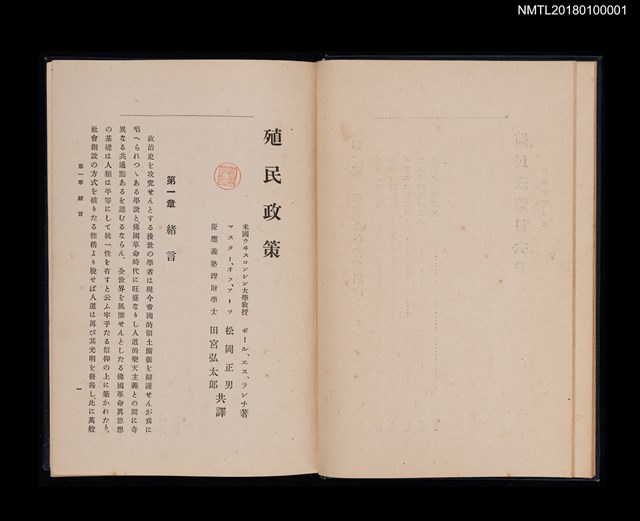 NMTL20180100001
殖民政策
米國ウヰスコンシン大學敎授 ポール、エス、ランチ著
マスター、オフ、アーツ 松岡正男
慶應義塾理財學士 田宮弘太郎 共譯
第一章 緖言
政治史を攻究せんとする後世の學者は現今帝國的領土擴張を辯護せんが爲に
唱へられつゝある學說と佛國革命時代に旺盛なりし人道的樂天主義との間に奇
異なる共通點あるを認むるならん、全世界を風靡せんとしたる佛國革命眞思想
の基礎は人類は平等にして統一性を有すと云ふ牢乎たる信仰の上に築かれたり、
社會創設の方式を破りたる桎梏より脫せば人道は再び其光明を發揚し此に萬般
第一章 緖言
一